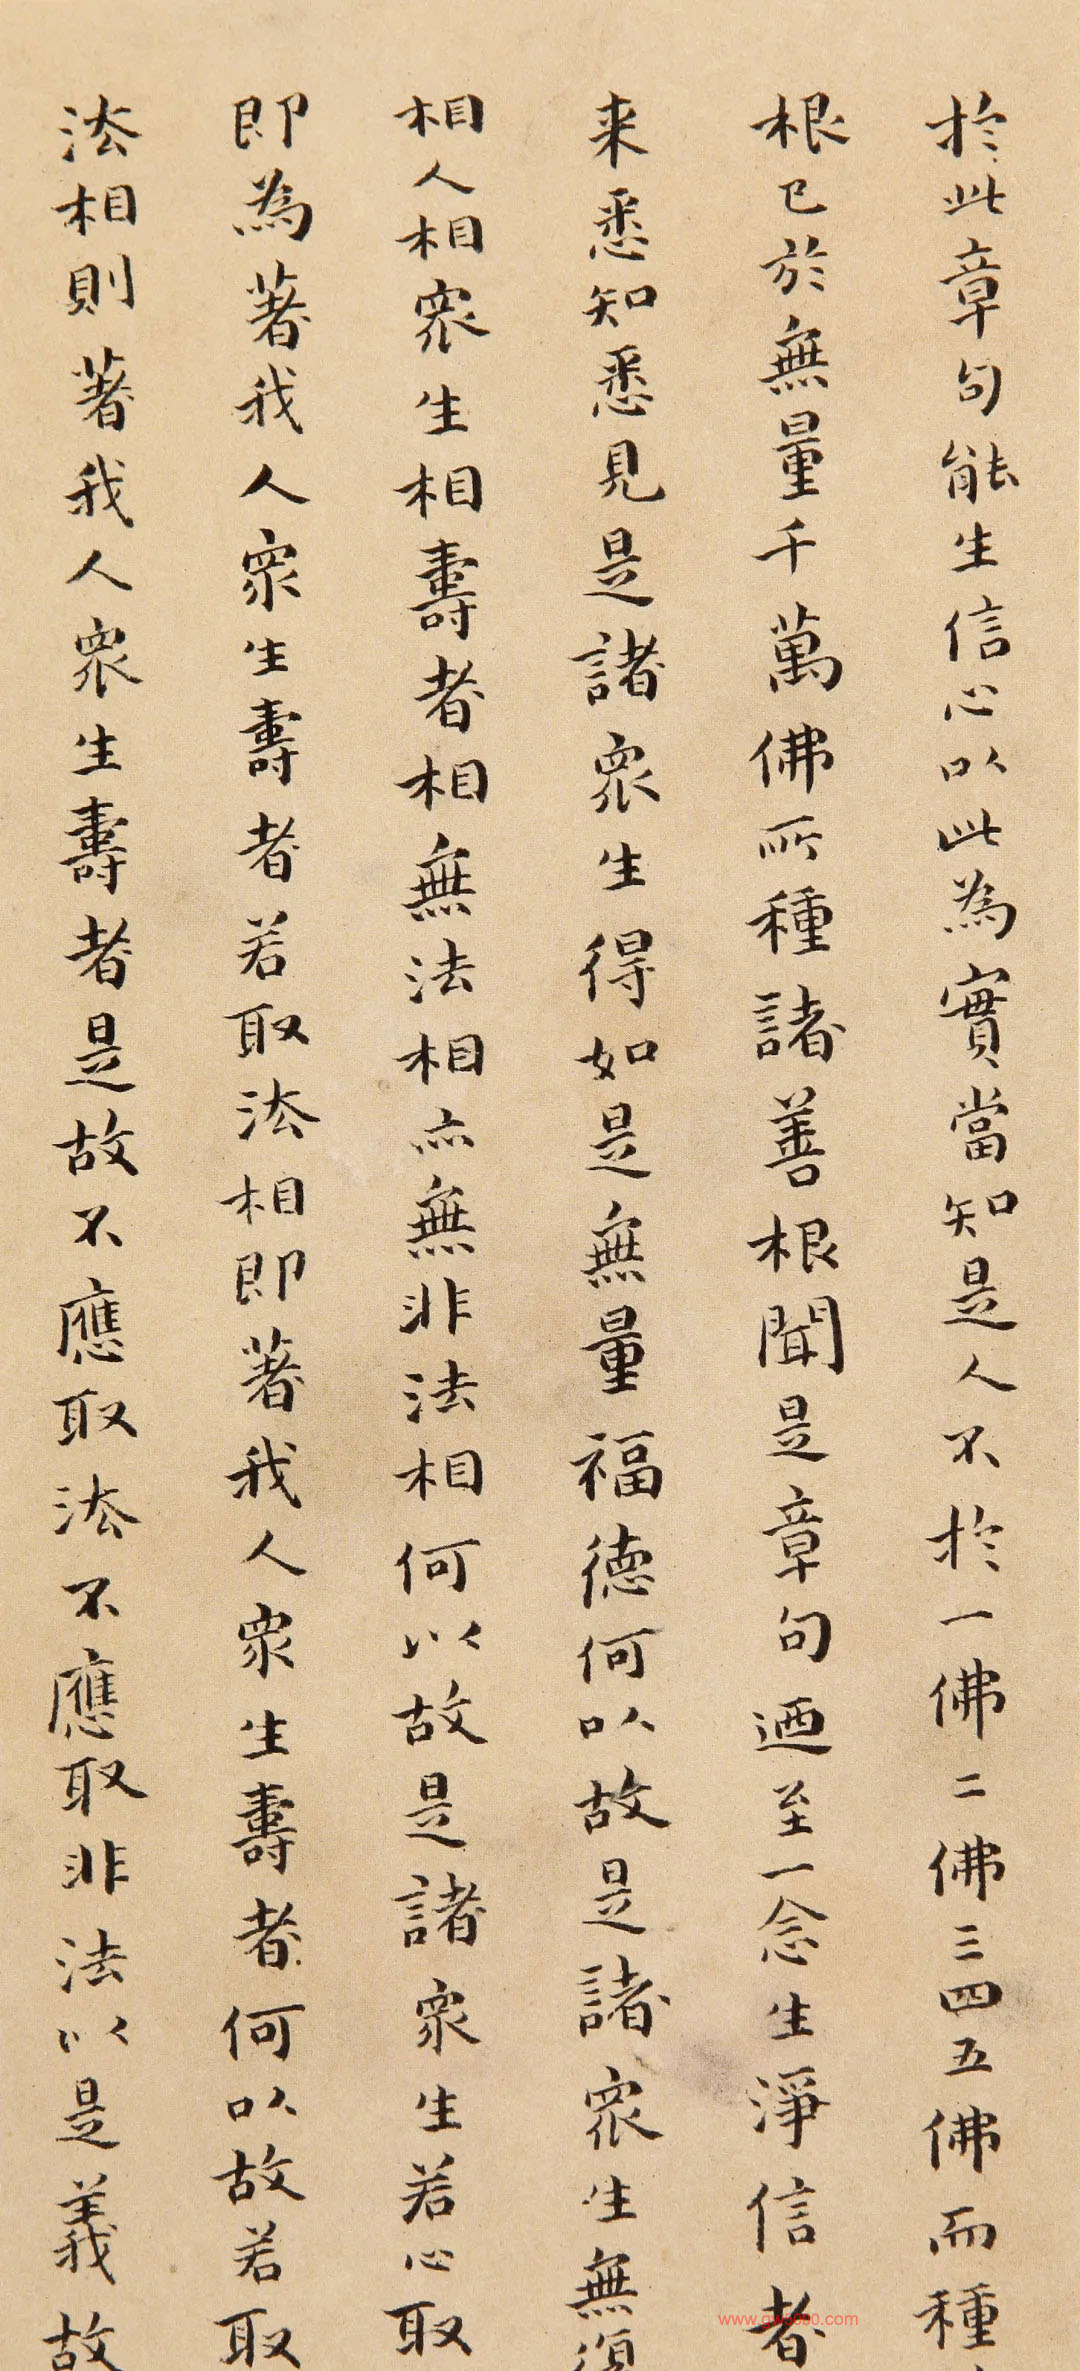 於此章句能生信心以此為實當知是人不於一佛二佛三四五佛而種
根已於無量千萬佛所種諸善根聞是章句迺至一念生淨信者
来悉知悉見是諸衆生得如是無量福德何以故是諸衆生無須
相人相衆生相壽者相無法相亦無非法相何以故是諸衆生若心取
即為著我人衆生壽者若取法相即著我人衆生壽者何以故若取
法相則著我人衆生壽者是故不應取法不應取非法以是義故